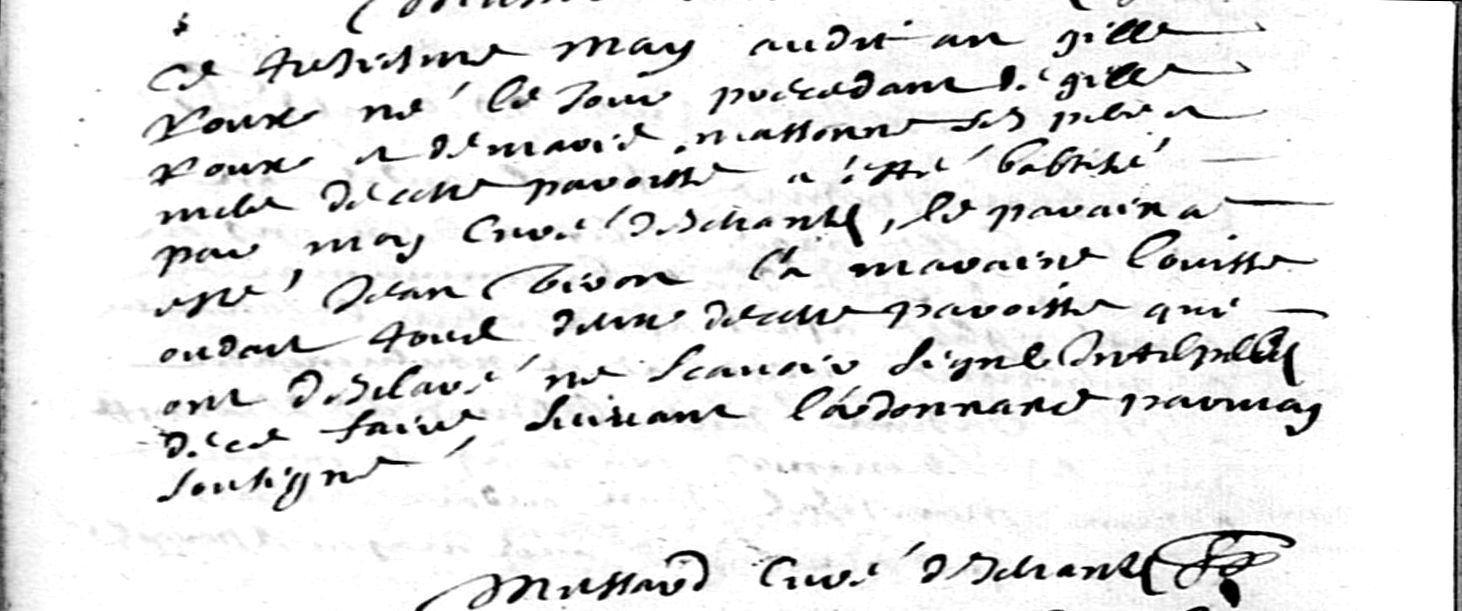 ce treiziesme may audit an gille
Roux né le jour precedant de gille
Roux et de marie massonne ses pere et
mere de cette paroisse a esté babtisé
par moy curé d'eschantz, le parain a
esté Jean la maraine louisse
tous deux de cette paroisse qui
ont desclaré ne scavoir signer Interpellez
de ce faire suivant l'ordonnance par moy
soubsigné
curé d'eschantz